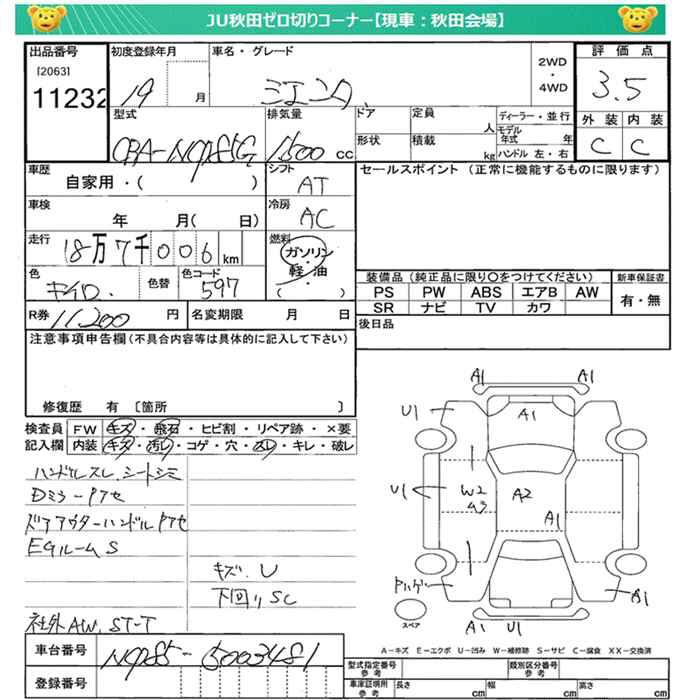 JU秋田ゼロ切りコーナー【現車：秋田会場】
出品番号
[2063]
11232
初度登録年月
19 月
車名・グレード
シエンタ
2WD
・
4WD
評価点
3.5
外装 内装
C C
型式
CBA-NCP85G
排気量
1500 cc
ドア
形状
定員
人
積載
kg
ディーラー・並行
モデル年式 年
ハンドル 左・右
車歴
自家用・( )
シフト
AT
セールスポイント（正常に機能するものに限ります）
車検
年 月( 日)
冷房
AC
走行
18万7千006km
燃料
ガソリン
・
軽・油
( )
色
キイロ.
色替
色コード
597
装備品（純正品に限り○をつけてください）
新車保証書
PS PW ABS エアB AW
有・無
SR ナビ TV カワ
R券 11,200 円
名変期限 月 日
後日品
注意事項申告欄(不具合内容等は具体的に記入して下さい)
修復歴 有 〔箇所 〕
検査員 FW キズ・飛石・ヒビ割・リペア跡・×要
記入欄 内装 キズ・汚レ・コゲ・穴・スレ・キレ・破レ
ハンドルスレ.シートシミ
Dミラーアセ
ドアアウターハンドルアセ
EGルームS
キズ.U
下回りSC
社外AW,ST-T
A1 A1
U1 A1
U1 W2 A2
A3
A1
Pハゲ A1
スペア
A1 U1
A－キズ E－エクボ U－凹み W－補修跡 S－サビ C－腐食 XX－交換済
車台番号 NCP85-5003481
登録番号
型式指定番号
参考
類別区分番号
参考
車庫証明用
参考
長さ cm 幅 cm 高さ cm